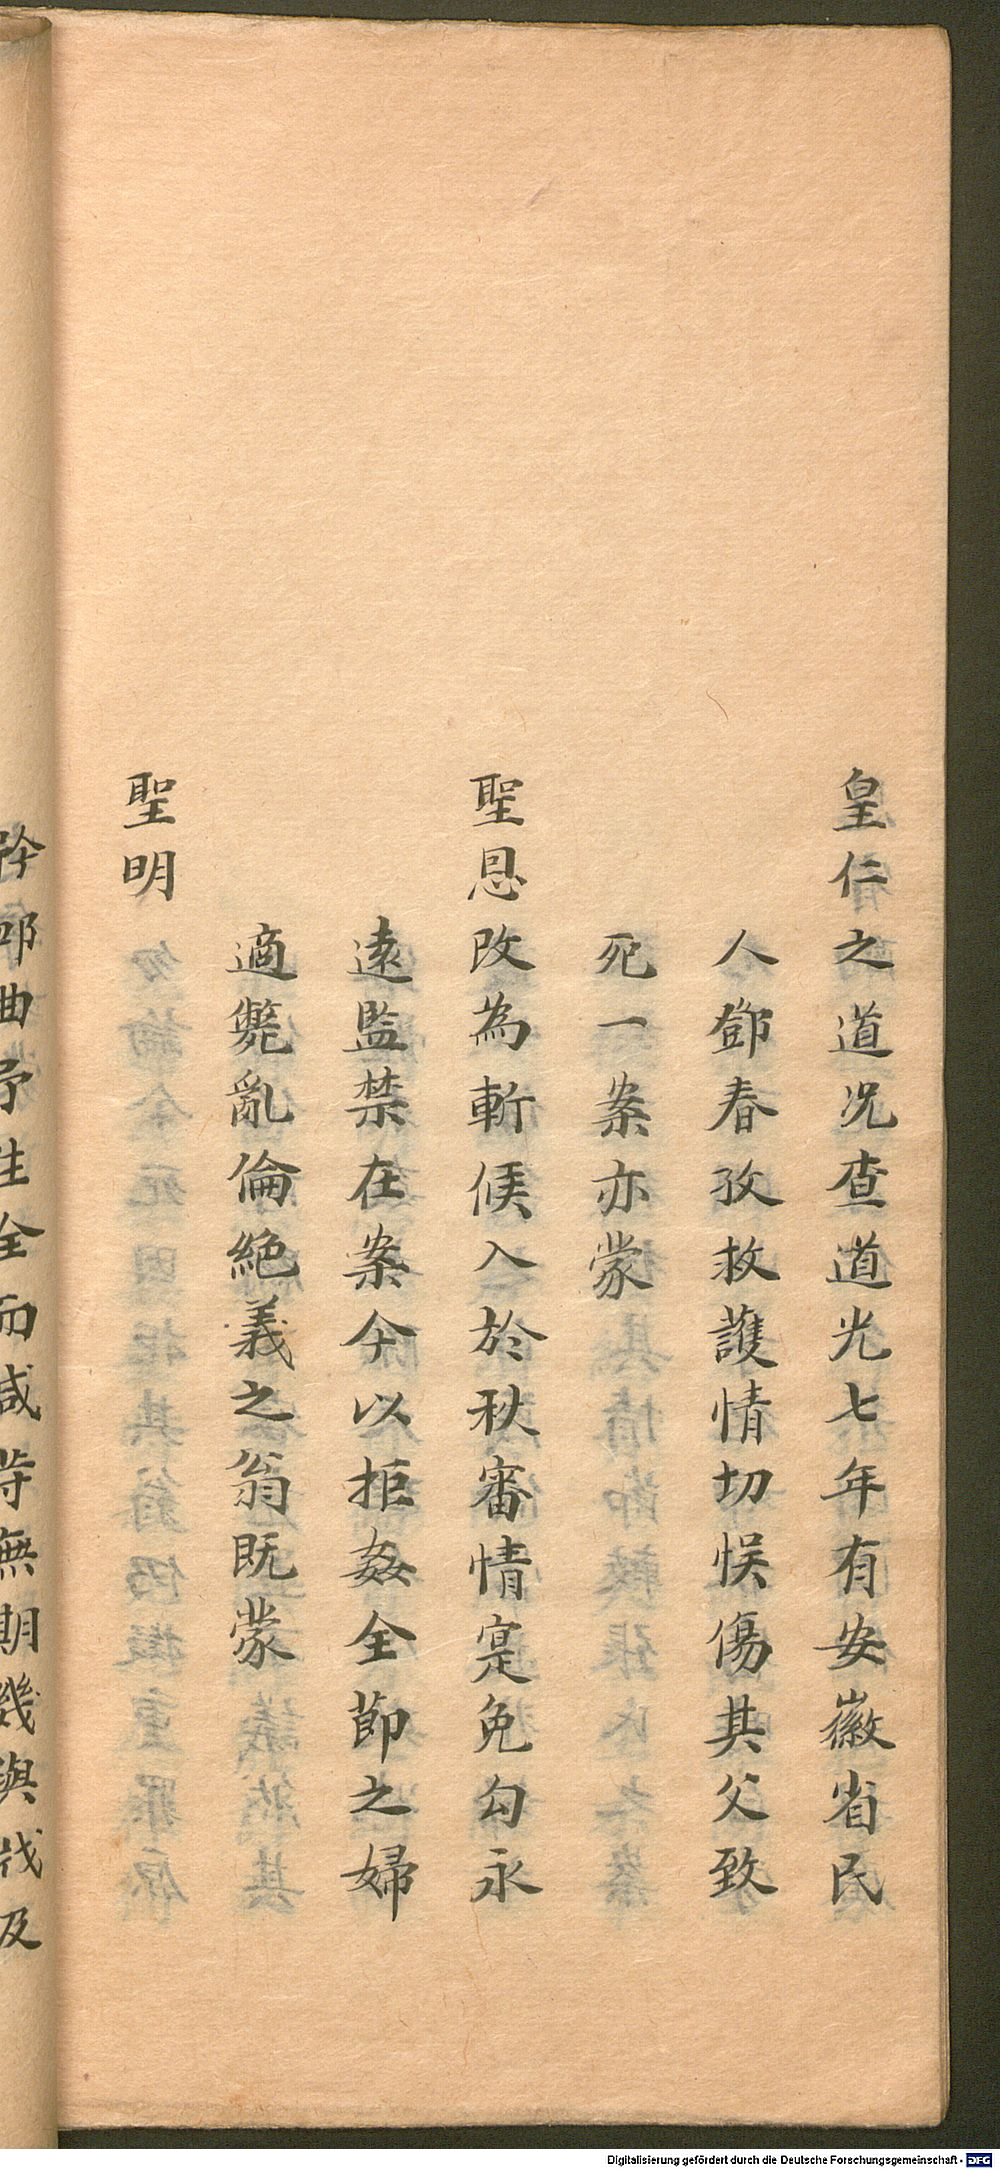 皇仁之道况查道光七年有安徽省民
人鄧春孜救護情切悮傷其父致
死一案亦蒙
聖恩改為斬候入於秋審情寔免勾永
遠監禁在案今以拒姦全節之婦
適斃亂倫絶義之翁既蒙
聖明
矜 曲予生全而咸 無期幾與 及
Digitalisierung gefördert durch die Deutsche Forschungsgemeinschaft - DFG